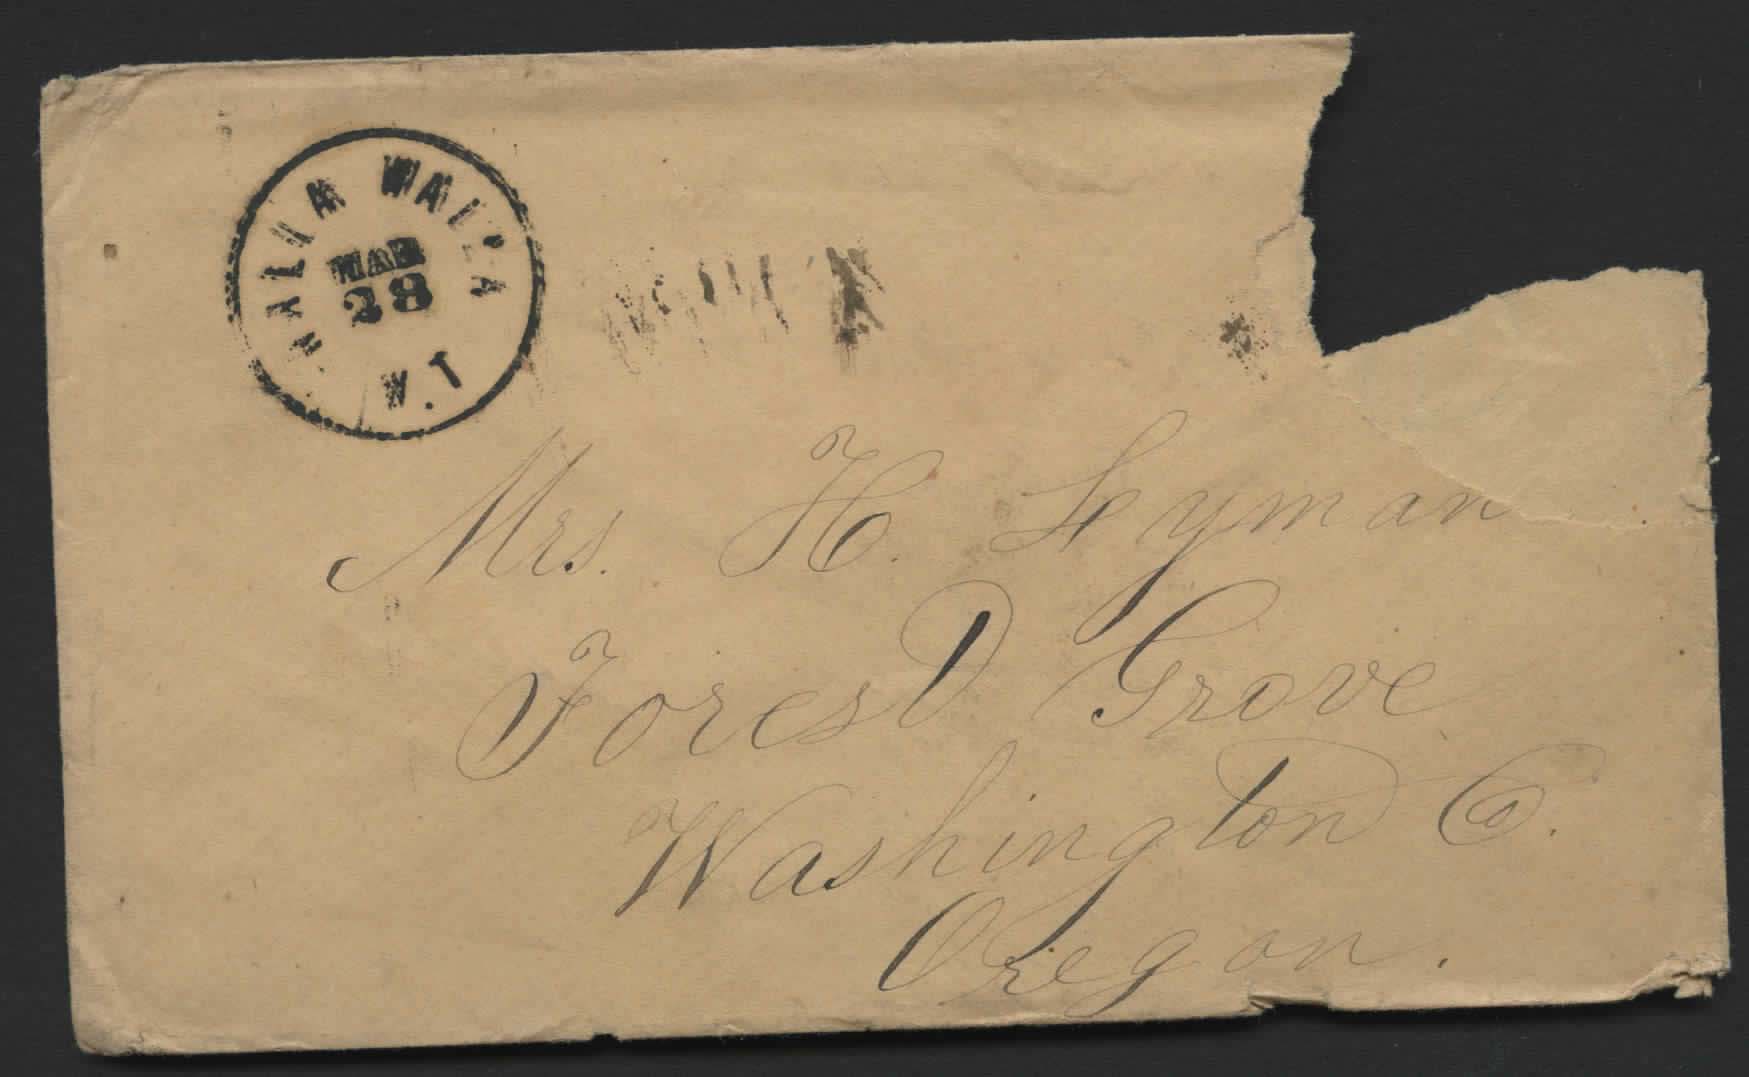 WALLA WALLA
MAR
28
W.T
Mrs. H. Lyman
Forest Grove
Washington C.
Oregon.